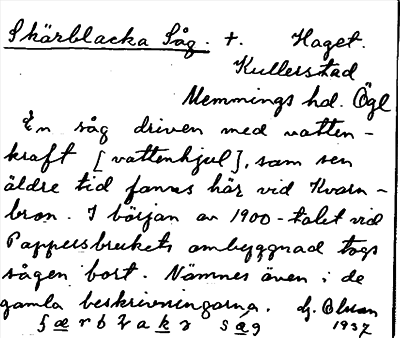 Skärblacka Såg. +. Haget.
Kullerstad
Memmings hd. Ögl
En såg driven med vatten-
kraft [vattenhjul], som sen
äldre tid fanns här vid Kvarn-
bron. I början av 1900-talet vid
Pappersbrukets ombyggnad togs
sågen bort. Nämnes även i de
gamla beskrivningarna. G. Olsson
1937